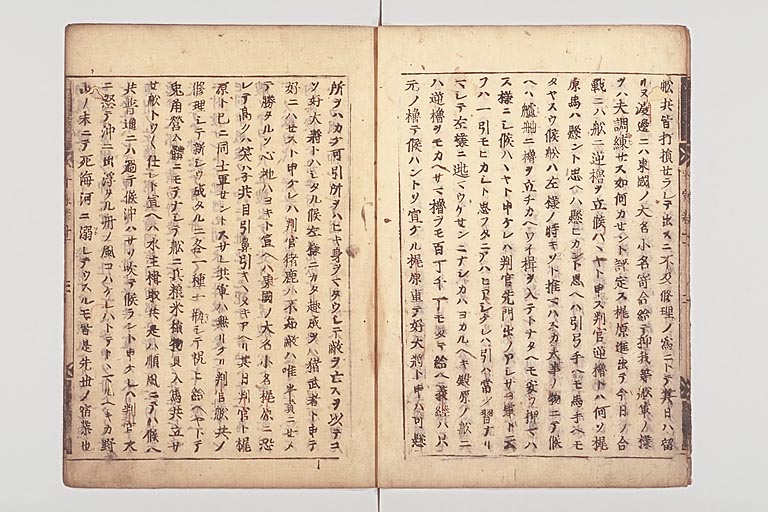 舩共皆打損セラレテ出スニ不及修理ノ為ニトテ其日ハ留
リヌ渡邊ニハ東國ノ大名小名寄合給テ抑我等舩軍ノ様
ヲハ未調練セス如何カセント評定ス梶原進出テ今日ノ合
戦ニハ舩ニ逆櫓ヲ立候ハヽヤト申ス判官逆櫓トハ何ソ梶
原馬ハ懸ント思ヘハ懸ヒカント思ヘハ引弓手ヘモ馬手ヘモ
タヤスウ候舩ハ左様ノ時キツト推マハスカ大事ノ物ニテ候
ヘハ艫舳ニ櫓ヲ立チカヘワイ楫ヲ入テトナタヘモ安ウ押マハ
ス様ニシ候ハヽヤト申ケレハ判官先門出ノアレサヨ軍ト云
フハ一引モヒカシト思フタニアハヒアシケレハ引ハ常ノ習ナリ
マシテ左様ニ逃マウケセンニナシカハヨカルヘキ殿原ノ舩ニ
ハ逆櫓ヲモカヘサマ櫓ヲモ百丁千丁モタテ給ヘ義経ハ只
元ノ櫓テ候ハントソ宣ケル梶原重テ好大將ト申ハ可懸
所ヲハカケ可引所ヲハヒキ身ヲマタウシテ敵ヲ亡スヲ以テコ
ソ好大將トハシタル候左様ニカタ趣成ヲハ猪武者ト申テ
好ニハセスト申ケレハ判官猪鹿ハ不知敵ハ唯平責ニセメ
テ勝タルソ心地ハヨキト宣ヘハ東國ノ大名小名梶原ニ恐
レテ高クハ笑ハネ共目引鼻引キヽメキアヘリ其日判官ト梶
原ト已ニ同士軍セントスサレ共軍ハ無リケリ判官舩共ノ
修理シテ新シウ成タルニ各一種一瓶シテ祝ヒ給ヘヤトテ
兎角營ム躰ニモテナシテ舩ニ兵粮米積物具入馬共立サ
セ舩トウ〱仕レト宣ヘハ水主楫取共是ハ順風ニテハ候ヘ
共普通ニハ過テ候沖ハサソ吹テ候ラント申ケレハ判官大
ニ怒テ沖ニ出浮タル舟ノ風コハケレハトテトヽマルヘキカ野
山ノ末ニテ死海河ニ溺レテウスルモ皆是先世ノ宿業也